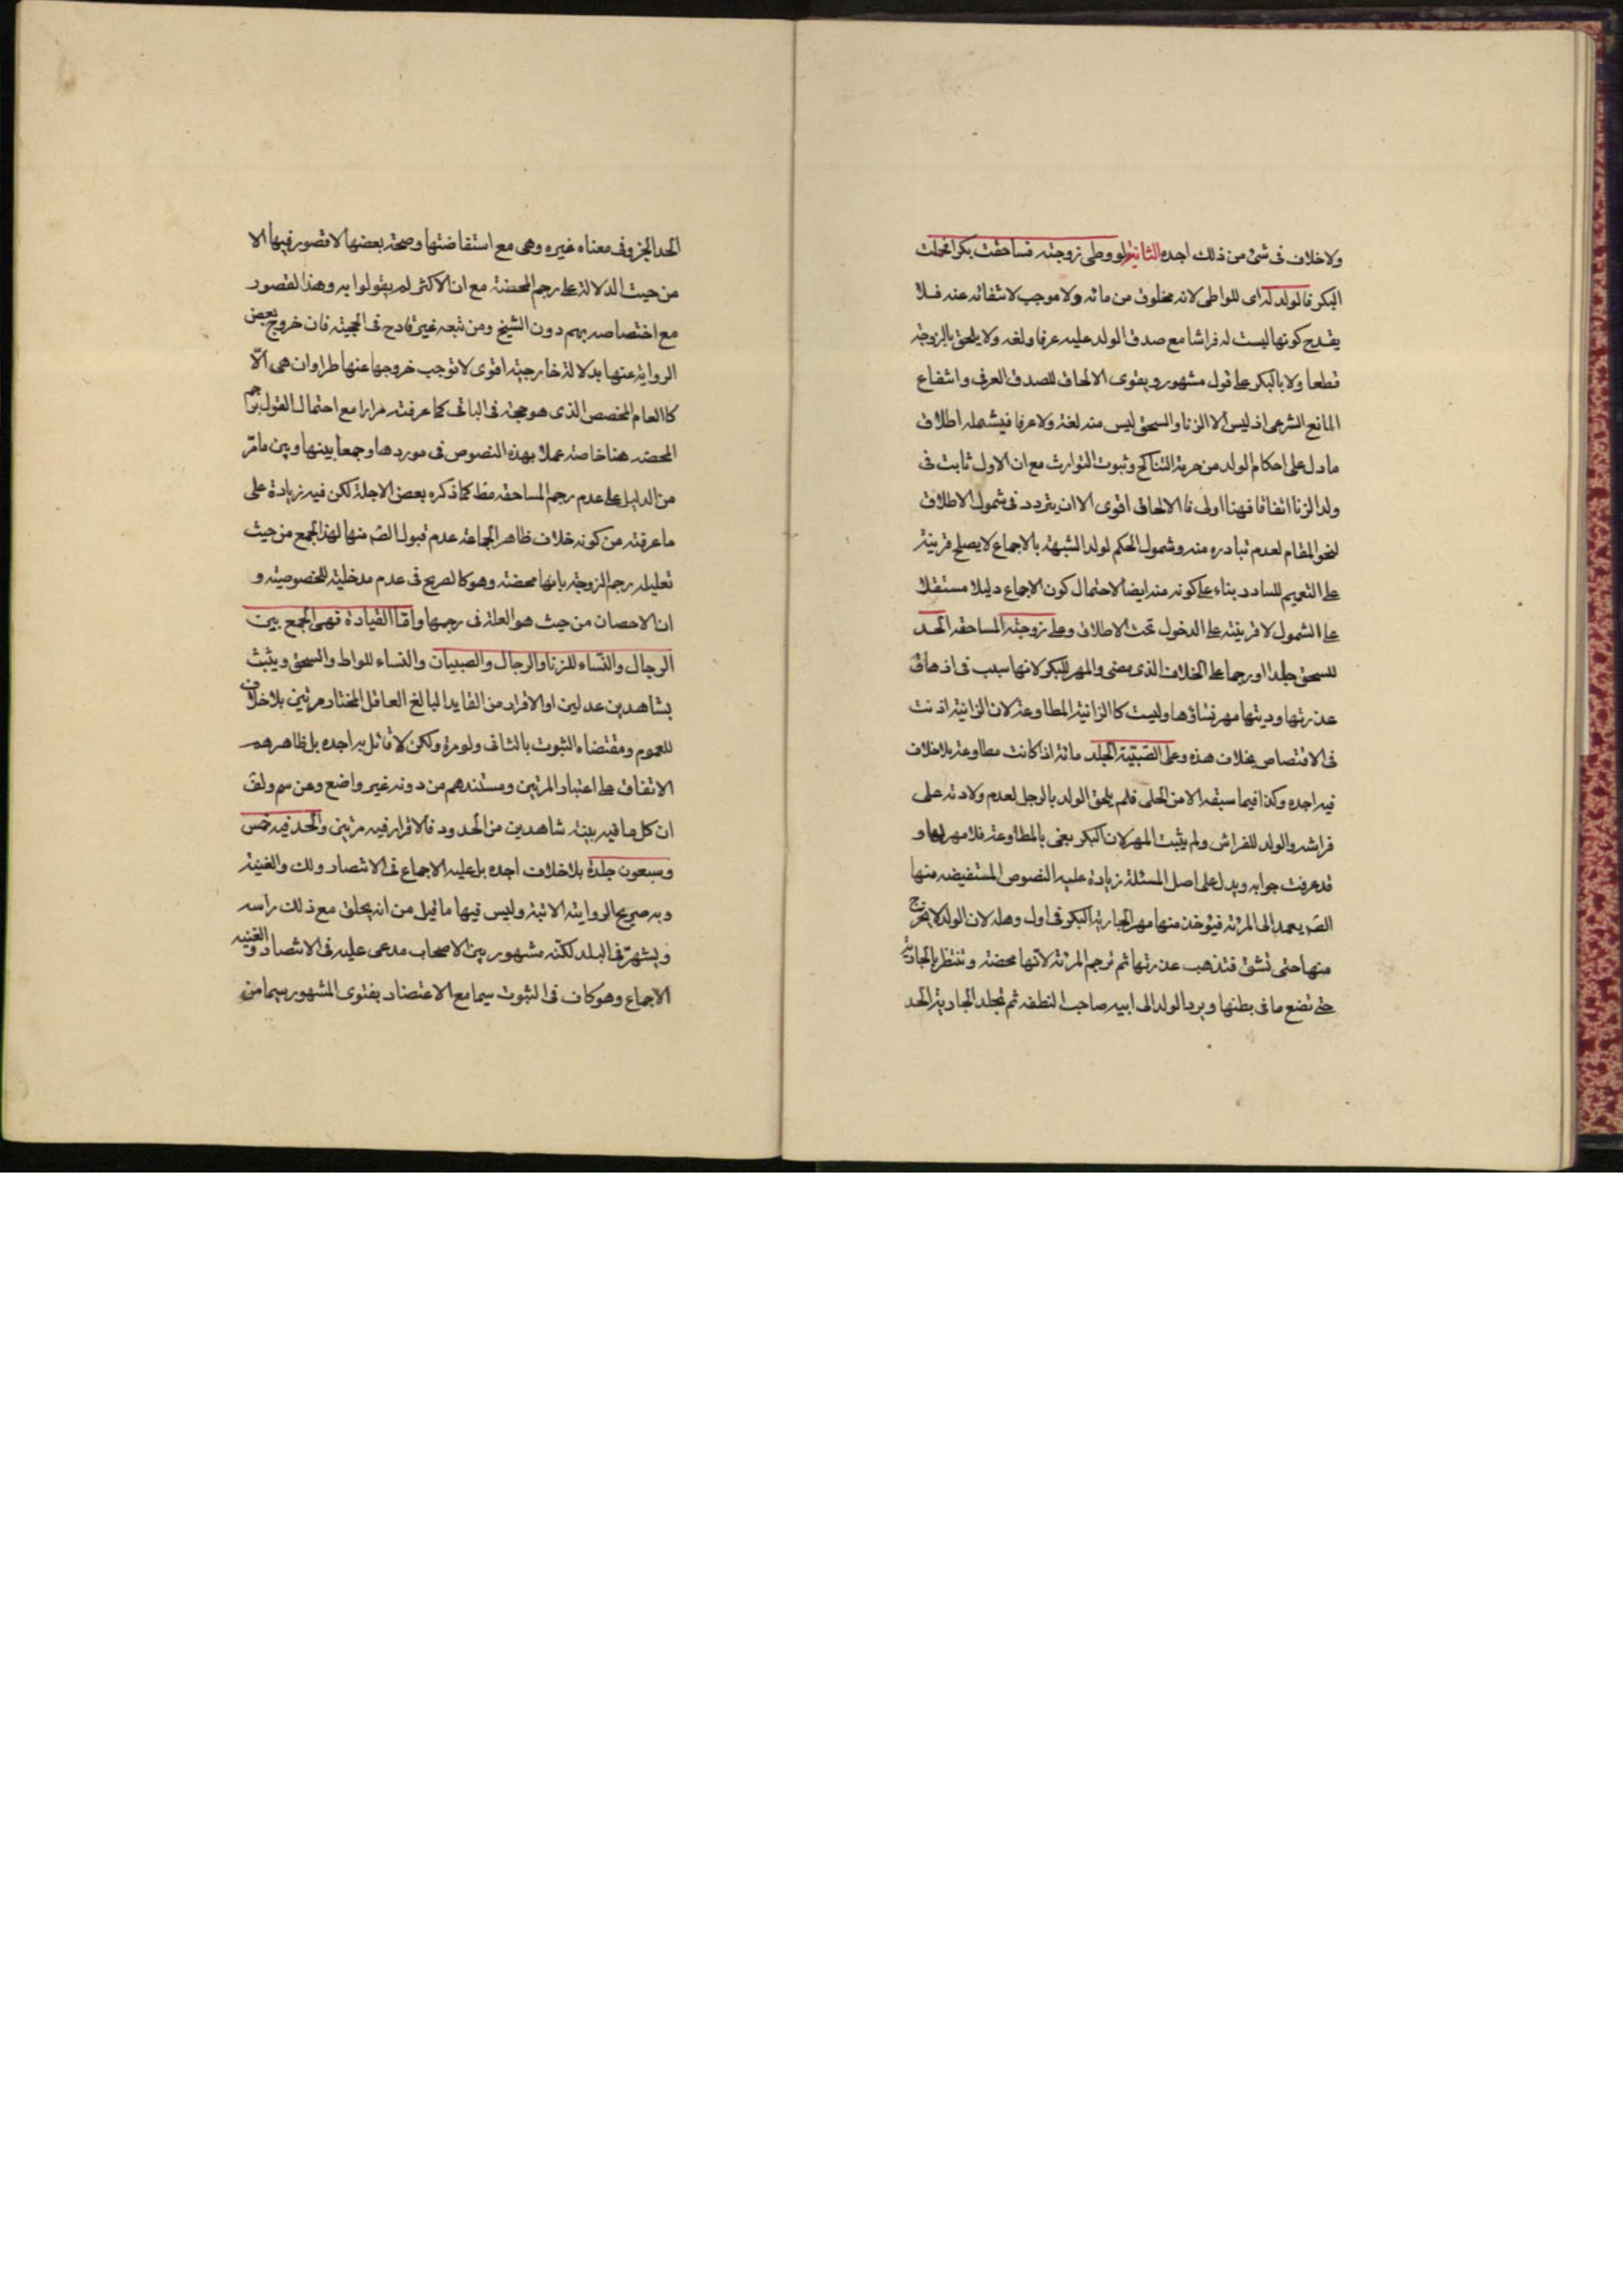 ولا خلاف فى شئ من ذلك اجده الثانية لو وطى زوجته فساحقت بكرا فحملت
البكر فالولد له اى للواطى لانه مخلوق من مائه ولا موجب لانتفائه عنه فلا
يقدح كونها ليست له فراشا مع صدق الولد عليه عرفا ولغه ولا يلحق بالزوجة
قطعا ولا بالبكر على قول مشهور ويقوى الالحاق للصدق العرفى وانتفاع
المانع الشرعى اذ ليس الا الزنا والسحق ليس منه لغة ولا عرفا فيشمله اطلاق
ما دل على احكام الولد من حرمة التناكح وثبوت التوارث مع ان الاول ثابت فى
ولد الزنا اتفاقا فهنا اولى فالالحاق اقوى الا ان يتردد فى شمول الاطلاق
لنحو المقام لعدم تبادره منه وشمول الحكم لولد الشبهة بالاجماع لا يصلح قرينة
على التعميم للسادد بناء على كونه منه ايضا لاحتمال كون الاجماع دليلا مستقلا
على الشمول لا قرينة على الدخول تحت الاطلاق وعلى زوجته المساحقه الحد
للسحق جلدا او رجما على الخلاف الذى مضى والمهر للبكر لانها سبب فى اذهاق
عذرتها وديتها مهر نساؤها وليست كالزانية المطاوعة لان الزانية اذنت
فى الاقتصاص بخلاف هذه وعلى الصبية الجلد مائة اذا كانت مطاوعة بلا خلاف
فيه اجده وكذا فيما سبقه الا من الحلى فلم يلحق الولد بالرجل لعدم ولادته على
فراشه والولد للفراش ولم يثبت المهر لان البكر بغى بالمطاوعة فلا مهر لها و
قد عرفت جوابه ويدل على اصل المسئلة زيادة عليه النصوص المستفيضه منها
الصَ يعمد الى المرئة فيؤخذ منها مهر الجارية البكر فى اول وهلة لان الولد لا يخرج
منها حتى تشق فتذهب عذرتها ثم ترجم المرئة لانها محصنة وتنتظر بالجارية
حتى تضع ما فى بطنها ويرد الولد الى ابيه صاحب النطفه ثم تجلد الجارية الحد
الحد الخبر وفى معناه غيره وهى مع استفاضتها وصحة بعضها لا قصور فيها الا
من حيث الدلالة على رجم المحصنة مع ان الاكثر لم يقولوا به وهذا القصور
مع اختصاصه بهم دون الشيخ ومن تبعه غير قادح فى الحجية فان خروج بعض
الرواية عنها بدلالة خارجية اقوى لا توجب خروجها عنها طرا وان هى الّا
كالعام المخصص الذى هو حجة فى الباقى كما عرفته مرارا مع احتمال القول برجم
المحصنه هنا خاصة عملا بهذه النصوص فى موردها وجمعا بينها وبين ما مّر
من الدليل على عدم رجم المساحقه فظ كما ذكره بعض الاجلة لكن فيه زيادة على
ما عرفته من كونه خلاف ظاهر الجماعة عدم قبول الصَ منها لهذا الجمع من حيث
تعليله رجم الزوجة بانها محصنة وهو كالصريح فى عدم مدخلية للخصوصية و
ان الاحصان من حيث هو العلة فى رجمها وامّا القيادة فهى الجمع بين
الرجال والنّساء للزنا والرجال والصبيان والنساء للواط والسحق ويثبت
بشاهدين عدلين او الاقرار من القايد البالغ العاقل المختار مرتين بلا خلاف
للعموم ومقتضاه الثبوت بالثانى ولو مرة ولكن لا قائل به اجده بل ظاهرهم
الاتفاق على اعتبار المرتين ومستندهم من دونه غير واضع وعن سم ولف
ان كل ما فيه بينة شاهدين من الحدود فالاقرار فيه مرتين والحد فيه خمس
وسبعون جلدة بلا خلاف اجده بل عليه الاجماع فى الانتصار ولك والغنية
وبه صريح الرواية الاتية وليس فيها ما قيل من انه يحلق مع ذلك راسه
ويشهّر فى البلد لكنّه مشهور بين الاصحاب مدعى عليه فى الانتصار والغنيه
الاجماع وهو كاف فى الثبوت سيما مع الاعتضاد بفتوى المشهور سيما من